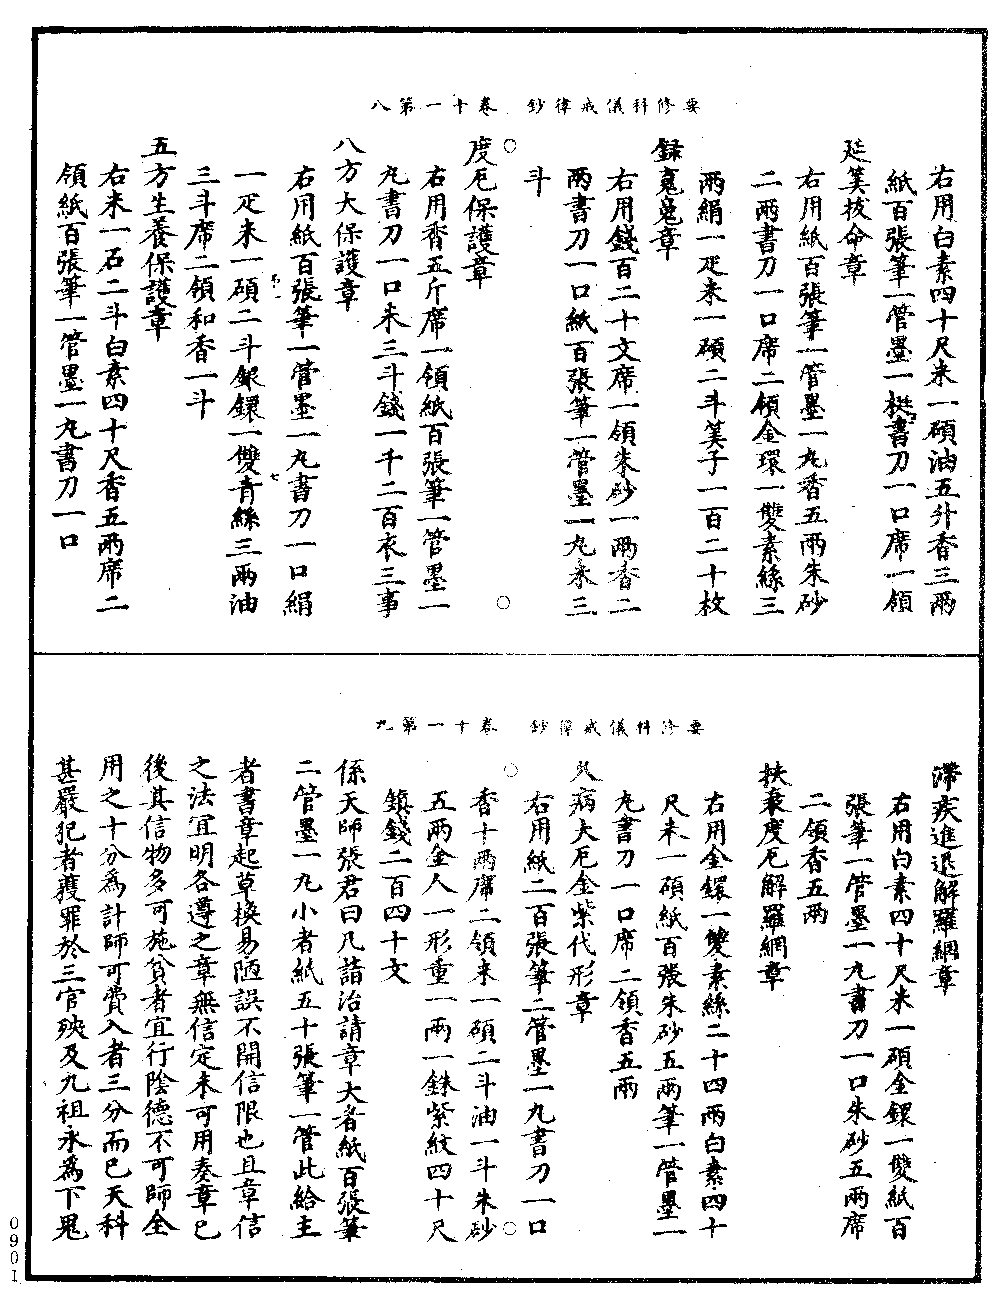 要修科儀戒律鈔　卷十一第八
右用白素四十尺米一碩油五升香三兩
紙百張筆一管墨一梃書刀一口席一領
延筭拔命章
右用紙百張筆一管墨一丸香五兩朱砂
二兩書刀一口席二領金環一雙素絲三
兩絹一疋米一碩二斗筭子一百二十枚
錄魂魄章
右用錢百二十文席一領朱砂一兩香二
兩書刀一口紙百張筆一管墨一丸米三
斗
度厄保護章
右用香五斤席一領紙百張筆一管墨一
丸書刀一口米三斗錢一千二百衣三事
八方大保護章
右用紙百張筆一管墨一丸書刀一口絹
一疋米一碩二斗銀鐶一雙青絲三兩油
三斗席二領和香一斗
五方生養保護章
右米一石二斗白素四十尺香五兩席二
領紙百張筆一管墨一丸書刀一口
要修科儀戒律鈔　卷十一第九
滯疾進退解羅網章
右用白素四十尺米一碩金鐶一雙紙百
張筆一管墨一丸書刀一口朱砂五兩席
二領香五兩
扶衰度厄解羅網章
右用金鐶一雙素絲二十四兩白素四十
尺米一碩紙百張朱砂五兩筆一管墨一
丸書刀一口席二領香五兩
疾病大厄金紫代形章
右用紙二百張筆二管墨一丸書刀一口
香十兩席二領米一碩二斗油一斗朱砂
五兩金人一形重一兩一銖紫紋四十尺
鎮錢二百四十文
係天師張君曰凡詣治請章大者紙百張筆
二管墨一丸小者紙五十張筆一管此給主
者書章起草換易陋誤不開信限也且章信
之法宜明各遵之章無信定未可用奏章已
後其信物多可施貧者宜行陰德不可師全
用之十分為計師可費入者三分而已天科
甚嚴犯者獲罪於三官殃及九祖永為下鬼
0901